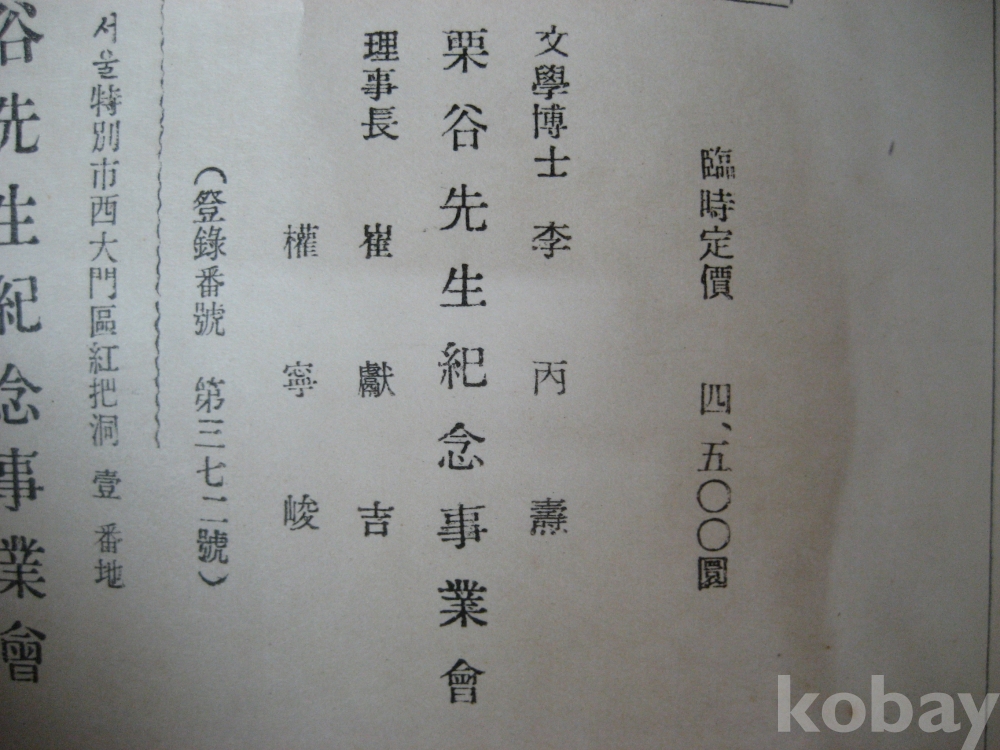 臨時定價 四、五〇〇圓
文學博士 李丙燾
栗谷先生紀念事業會
理事長 崔獻吉
權寧峻
(登錄番號 第三七二號)
서울特別市西大門區紅把洞 壹番地
谷先生紀念事業會
kobay